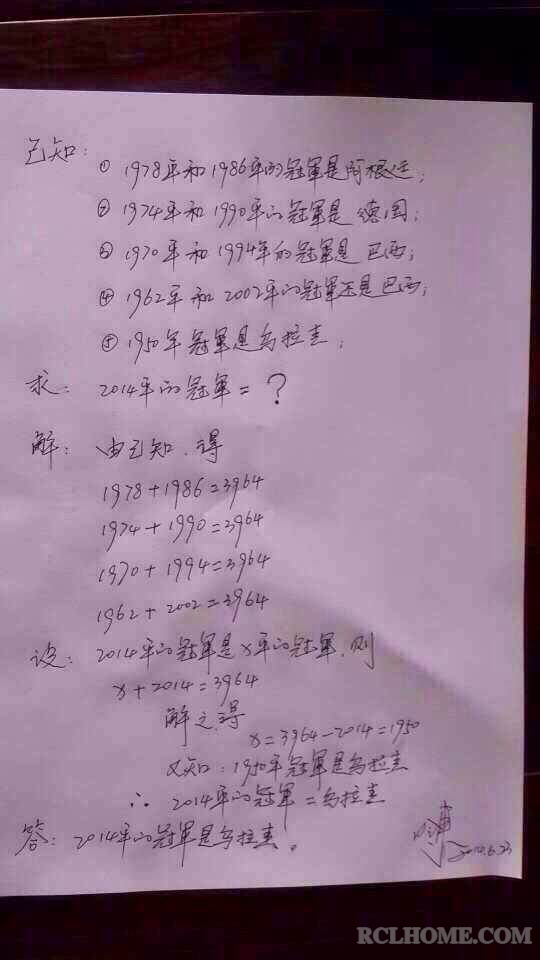 已知:
① 1978年和1986年的冠軍是阿根廷;
② 1974年和1990年的冠軍是德国;
③ 1970年和1994年的冠軍是巴西;
④ 1962年和2002年的冠軍还是巴西;
⑤ 1950年冠軍是乌拉圭;
求: 2014年的冠軍=?
解: 由已知.得
1978+1986=3964
1974+1990=3964
1970+1994=3964
1962+2002=3964
设: 2014年的冠軍是x年的冠軍,则
x+2014=3964
解之得
x=3964-2014=1950
又知:1950年冠軍是乌拉圭
∴ 2014年的冠軍=乌拉圭
答: 2014年的冠軍是乌拉圭。
2014.6.23
RCLHOME.COM